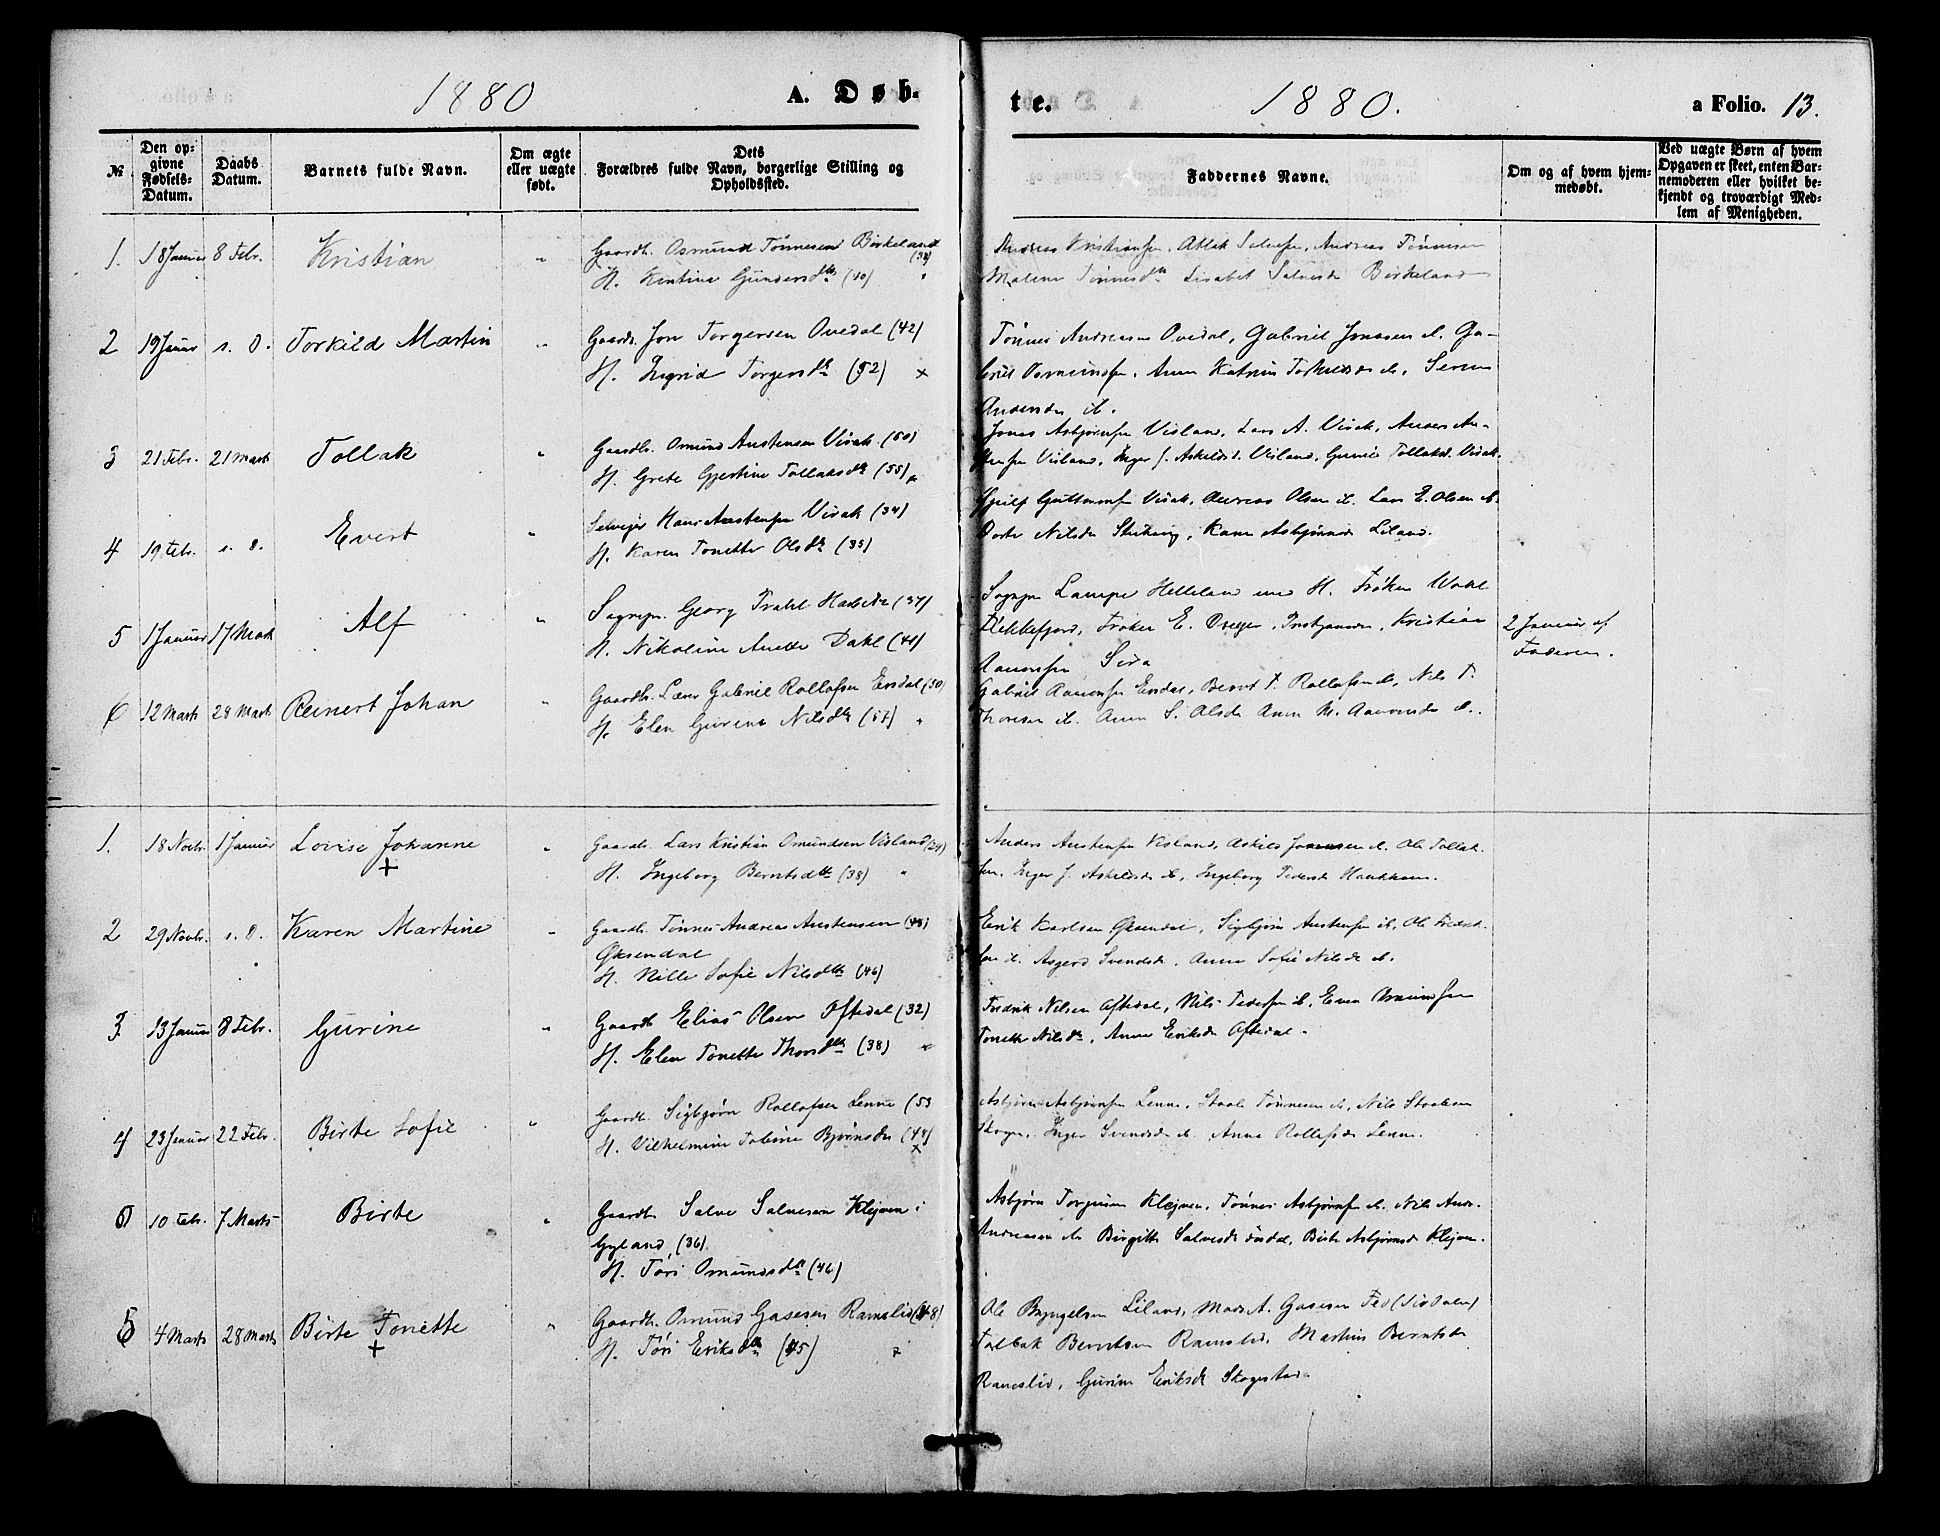 1880 A. Døb-
te. 1880. a Folio. 13.
№
Den op-
givne
Fødsels-
Datum.
Daabs
Datum.
Barnets fulde Navn.
Om ægte
eller uægte
født.
Dets
Forældres fulde Navn, borgerlige Stilling og
Opholdssted.
Faddernes Navne.
Om og af hvem hjem-
medøbt.
Ved uægte Børn af hvem
Opgaven er skeet, enten Bar-
nemoderen eller hvilket be-
kjendt og troværdigt Med-
lem af Menigheden.
1. 18 Januar 8 Febr. Kristian "
Gaardb. Osmund Tønnesen Birkeland
H. Gundersdtr (40) "
Kristiansen, Atlak Salvesen, Andreas Tønnesen
Malene Tønnesdtr Lisabet Salvesdr Birkeland
2 19 Januar s. D. Torkild Martin "
Gaardb. Jon Torgersen Ovedal (42)
H. Ingrid Torgersdtr (52) x
Tønnes Andreasen Ovedal, Gabriel Jonassen d. Ga-
briel Osmundsen, Anna Katrine d. Serine
Andersdr d.
3 21 Febr. 21 Marts Tollak "
Gaardb. Omund Austensen Virak (50)
H. Grete Gjertine Tollaksdtr (55)
Jonas Asbjørnsen Visland, Lars A. Virak, Anders Au-
stensen Visland, Inger J. Askildsd. Visland, Gunild Tollaksd. Virak.
4 19 Febr. s. D. Evert "
Selvejer Hans Austensen Virak (34)
H. Karen Tonette Olsdtr (35)
Guttormsen Virak, Andreas Olsen d. Lars E. Olsen d.
Dorte Nilsdr Karen Asbjørnsdr Liland.
5 1 Januar 17 Marts Alf "
Sogrepr. Georg Prahl Harbitz (37)
H. Nikoline Anette Dahl (41)
Sognepr Lampe Helleland med H. Frøken Wahl
Flekkefjord, Frøken E. Kristian
Aanensen Sira
2 Januar af
Faderen.
6 12 Marts 28 Marts Reinert Johan "
Gaardb. Lars Gabriel Rollofsen Ersdal (50)
H. Elen Gurine Nilsdtr (57) "
Gabriel Aanensen Ersdal, Bernt T. Rollofsen d., Nils T.
Thorsen d. Anne S. Olsdr Anne M. Aanensdr d.
1. 18 Novbr. 1 Januar Lovise Johanne "
+
Gaardb. Lars Kristian Omundsen Visland
H. Ingeborg Berntsdtr (38) "
Anders Austensen Visland, Askild Jonassen d. Ole Tollak-
sen, Inger J. Askildsdr d., Ingeborg Pedersdr Haukham.
2 29 Novbr. s. D. Karen Martine "
Gaardb. Tønnes Andreas Austensen (48)
Øksendal
H. Nille Sofie Nilsdtr (46)
Erik Karlsen Øksendal, Sigbjørn Austensen d., Ole Fredrik-
sen d. Asgerd Svendsdr, Anne Sofie Nilsdr d.
3 13 Januar 8 Febr. Gurine "
Gaardb Elias Olsen Oftedal (32)
H. Elen Tonette Thorsdtr (38) "
Fredrik Nilsen Oftedal, Nils Pedersen d, Even Omundsen
Tonette Nilsdr, Anne Eriksdr Oftedal.
4 23 Januar 22 Febr. Birte Sofie "
Gaardb. Sigbjørn Rollofsen Lenne (53
H. Vilhelmine Tobine Bjørnsdr (44)
x
Asbjørn Asbjørnsen Lenne, Staale Tønnesen d., Nils Staalesen
Inger Svendsdr d. Anna Rollofsdr Lenne.
5 10 Febr. 7 Marts Birte "
Gaardb. Salve Salvesen Klejven i
Gyland (36)
H. Tori Omundsdtr (46)
Asbjørn Torgersen Klejven, Tønnes Asbjørnsen d. Nils Andr.
Andreasen d. Birgitte Salvesdr Birte Asbjørnsdr Klejven.
6 4 Marts 28 Marts Birte Tonette "
+
Gaardb. Omund Gasesen Ramslid (48)
H. Tori Eriksdtr (45) x
Ole Bryngelsen Liland, Mads A. Gasesen Fed (Sirdalen)
Tollak Berntsen Ramslid. Martine Berntsdr
Ramslid, Gurine Eriksdr Skogestad.